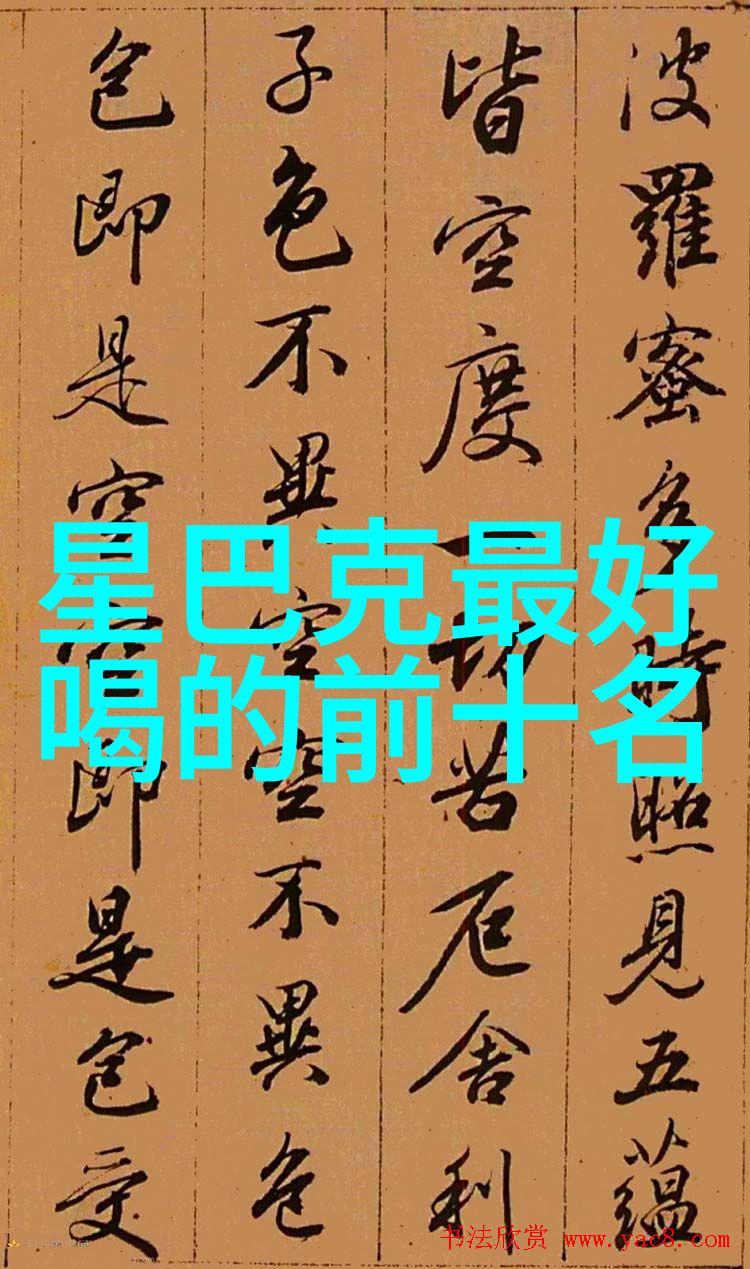 波羅蜜多時照見五蘊
皆空度一切苦厄舍利
子色不異空空不異色
色即是空空即是色受
星巴克最好
喝的前十名
书法欣赏 www.yac8.com